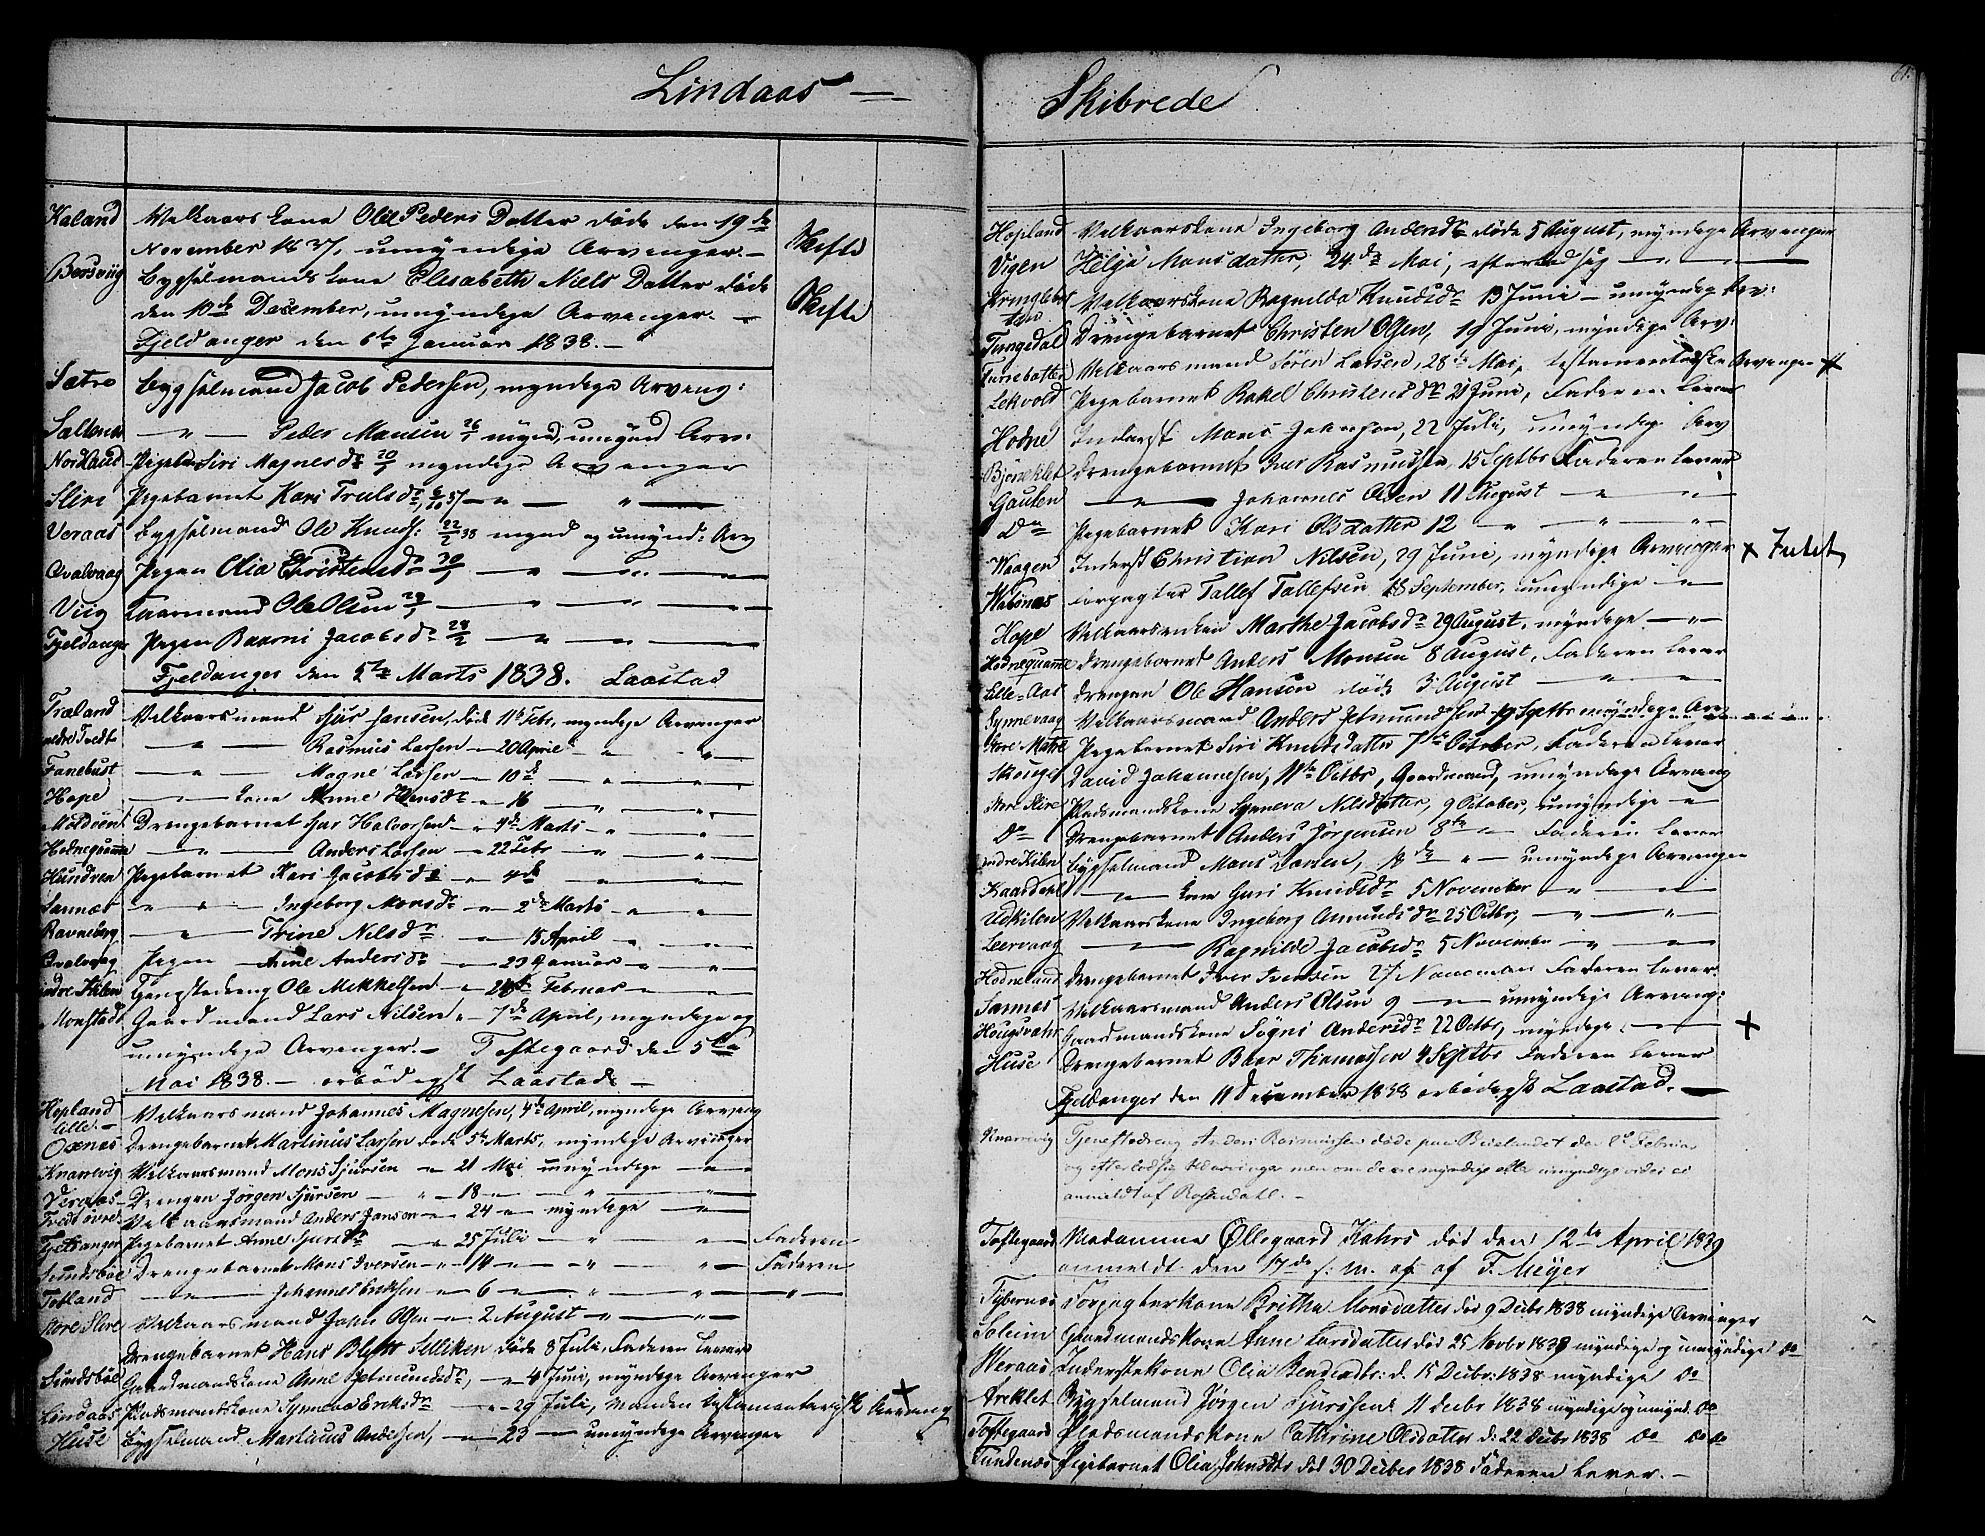 Lindaas —
Kaland Velkaarskone Olii Peders Datter døde den 19de
November 1837, umyndige Arvenger. — Skifte
Bersviig Bygselmands kone Elisabeth Niels Datter døde
den 10de December, umyndige Arvenger. — Skifte
Fjeldanger den 6te Januar 1838. —
Sætre Bygselmand Jacob Pedersen, myndige Arveng:
— " — Peder Monsen 26/1 mynd, umynd Arv:
Nordland Pigen Siri Magnesdr 20/1 myndige Arvenger
Slire Pigebarnet Kari Trulsdr 6/10 37 — " — " —
Veraas Bygselmand Ole Knuds: 22/2 38 mynd og umynd: Arv
Qvalvaag Pigen Olia Christensdr 30/1 — " — " —
Viig Kaarmand Ole Olsen — " —
Fjeldanger Pigen Baarni Jacobsdr 28/2 — " —
Fjeldanger den 5te Marts 1838. Laastad
Træland Velkaarsmand Sjur Jansen, døde 11te Febr, myndige Arvenger
nedre Tvedt — " — Rasmus Larsen — 20 April " — " —
Fanebust — " — Magne Larsen — 10de — " — " —
Hope — " — kone Anne Hansdr — 16 — " — " —
Moldsund Drengebarnet Sjur Halvorsen — 4de Marts — " —
Hodneqvamme — " — Anders Larsen — 22 Febr " — " —
Hundven Pigebarnet Kari Jacobsdr — 4de — " — " —
Sannæs — " — Ingeborg Monsdr — 2de Marts — " —
Ravneberg — " — Trine Nilsdr — 15 April " — " —
Qvalvaag Pigen — Anne Andersdr — 23 Januar " — " —
indre Kilen Tjenestedreng Ole Mikkelsen — 24de Februar — " —
Monstad Gaardmand Lars Nilsen " — 7de April, myndige og
umyndige Arvenger. — Toftegaard den 5te
Mai 1838. — erbødigst Laastad —
Hopland lille — Velkaarsmand Johannes Magnesen, 4de April, myndige Arveng
Oxnes Drengebarnet Martinus Larsen døde 5te Marts, myndige Arvinger
Knarrvig Velkaarsmand Mons Sjursen — 21 Mai umyndige — " —
Veraas Drengen Jørgen Sjursen — " — 18 — " — " —
Tvedt øvre Velkaarsmand Anders Janson — 24 — myndige — " —
Fjeldanger Pigebarnet Anne Sjursdr — 25 Juli — " — " — Faderen
Sundsbøe Drengebarnet Mons Iversen — " — 14 — " — " — Faderen
Totland — " — Johannes Eriksen — 6 — " — " — " —
store Slire Velkaarsmand John Olsen — 2 August — " — " —
Drengebarnet Hans Blytt Selliken døde 8 Juli, Faderen lever
Sundsbøe Gaardmandskone Anne Jetmundsdr, — 4 Juni, myndige Arvenger
Lindaas Pladsmandskone Synneva Eriksdr — 29 Juli, Manden testamentarisk Arveng +
Huse Bygselmand Martinus Andersen, — 23 — umyndige Arvenger
Skibrede 61.
Hopland Velkaarskone Ingeborg Andersdr døde 5 August, myndige Arvenger
Vigen Helje Monsdatter, 24de Mai, efterlod sig — " —
Kringlebotten Velkaarskone Ragnilda Knudsdr 13 Juni — umyndige Arv:
Tungedal Drengebarnet Christen Olsen, 19 Juni, myndige Arv:
Velkaarsmand Søren Larsen, 28de Mai, testamentariske Arvenger #
Lekvold Pigebarnet Rakel Christensdr 21 Juni, Faderen lever
Hodne Inderst Mons Johanson, 22 Juli, umyndige Arv
Drengebarnet Iver Rasmussen, 15 Septbr Faderen lever
Gauten — " — Johannes Olsen 11 August — " — "
Do Pigebarnet Kari Olsdatter 12 — " — " — "
Waagen Inderst Christian Nilsen, 29 Juni, myndige Arvenger + Intet
Forpagter Tallef Tallefsen 18 September, umyndige — " —
Hope Velkaarsenken Marthe Jacobsdr 29 August, myndige — " —
Hodneqvamme Drengebarnet Anders Monsen 8 August, Faderen lever
Lille-Aas Drengen Ole Hanson døde 3 August — " — "
Synnevaag Velkaarsmand Anders Jetmundsen 19 Septbr myndige Arv
store Matre Pigebarnet Siri Knudsdatter 7de October, Faderen lever
Skouger David Johannesen, 11te Octbr, Gaardmand, umyndige Arveng
store Slire Pladsmandskone Synneva Nilsdatter, 9 October, umyndige — " —
Do Drengebarnet Anders Jørgensen 8de — " — Faderen lever
indre Kilen Bygselmand Mons Larsen, — " — umyndige Arvenger
Kaardal — " — kone Guri Knudsdr 5 November — " — " —
Udkilen Velkaarskone Ingeborg Amundsdr 25 Octbr, — " — " —
Leervaag — " — Ragnilde Jacobsdr 5 November — " — " —
Hodneland Drengebarnet Iver Iversen 27 November Faderen lever
Sannes Velkaarsmand Anders Olsen 9 — " — umyndige Arveng:
Gaardmandskone Sogni Andersdr 22 Octbr, myndige — " — +
Huse Drengebarnet Baar Thomassen 4 Septbr Faderen lever
Fjeldanger den 11 December 1838 erbødigst Laastad. —
Knarrvig Tjenestedreng Anders Rasmussen døde paa Beielandet den 2de Februar
og efterlod sig Arvinger men om de ere myndige eller umyndige vides ei
anmeldt af Rosendahl. —
Toftegaard Madamme Øllegaard Kahrs død den 12te April 1839
anmeldt den 17de s: M. af af F. Meyer
Forpagterkone Britha Monsdatter død 9 Decbr 1838 myndige Arvinger
Solein Gaardmandskone Anne Larsdatter død 25 Novbr 1838 myndige og umyndige do
Weraas Inderstekone Olia Bendixdtr: d. 15 Decbr: 1838 myndige do
Areklet Bygselmand Jørgen Sjursen 11 decbr 1838 myndige og umynd. do
Toftegaard Pladsmandskone Cathrine Olsdatter d: 22 Decbr 1838 do do do
Tundenæs Pigebarnet Olia Johnsdtr død 30 Decbr 1838 Faderen lever. —